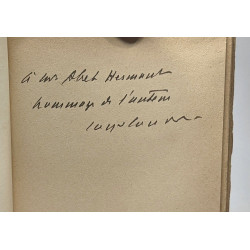 à M. Abel Hermant
hommage de l'auteur